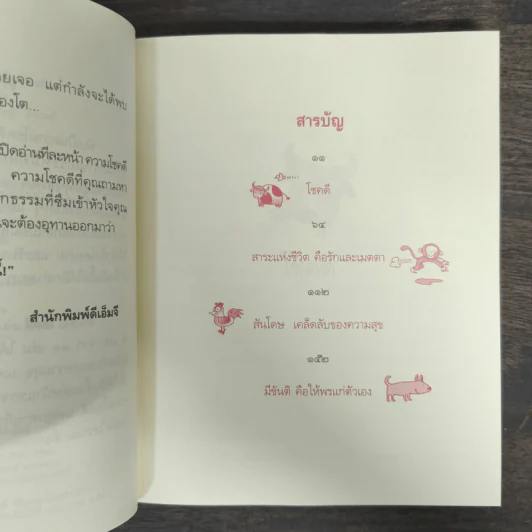 แต่กำลังจะได้พบ
องโต...
ปิดอ่านทีละหน้า ความโชคดี
ความโชคดีที่คุณถามหา
กธรรมที่ซึมเข้าหัวใจคุณ
จะต้องอุทานออกมาว่า
สำนักพิมพ์ดีเอ็มจี
สารบัญ
๑๑
โชคดี
๖๔
สาระแห่งชีวิต คือรักและเมตตา
๑๑๒
สันโดษ เคล็ดลับของความสุข
๑๕๒
มีขันติ คือให้พรแก่ตัวเอง